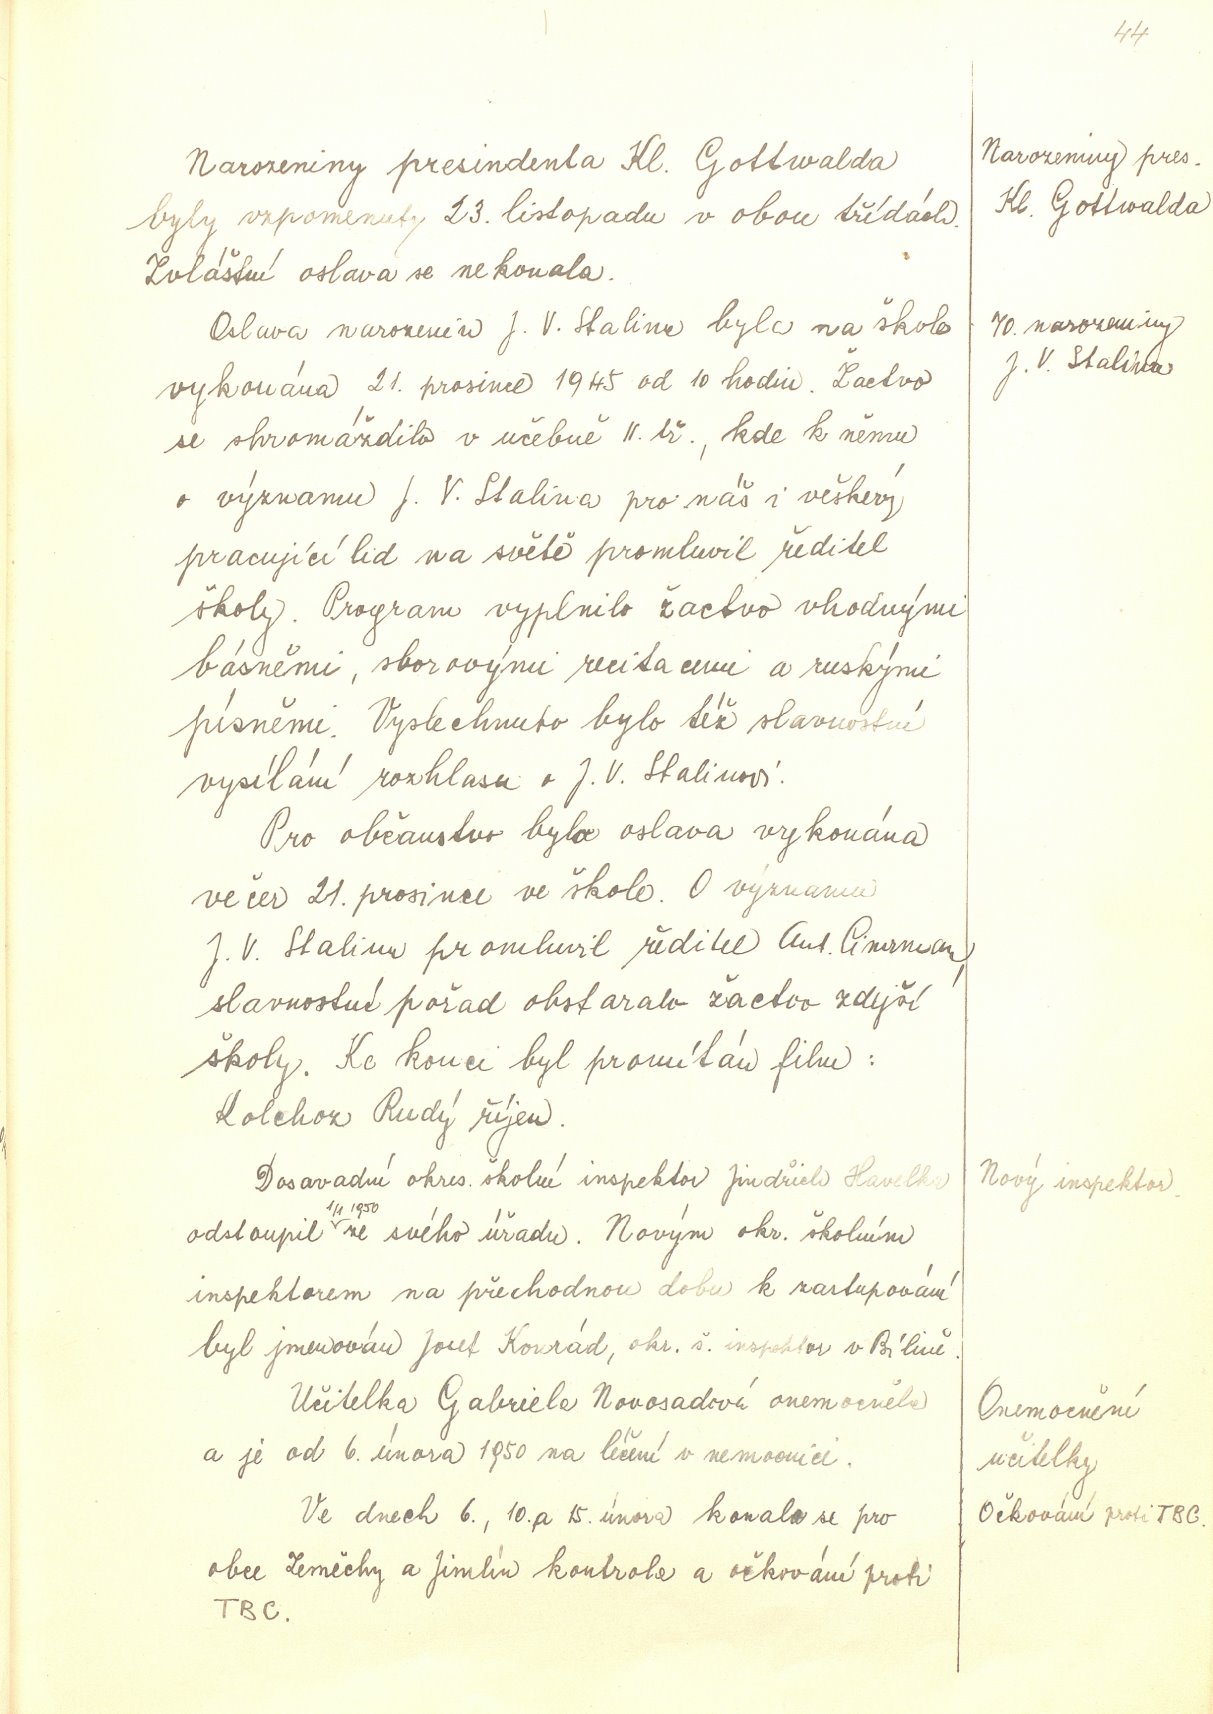 44
Narozeniny presindenta Kl. Gottwalda
byly vzpomenuty 23. listopadu v obou třídách.
Zvláštní oslava se nekonala.
Narozeniny pres.
Kl. Gottwalda
Oslava narozenin J. V. Stalina byla na škole
vykonána 21. prosince 1945 od 10 hodin. Žactvo
se shromáždilo v učebně II. tř., kde k němu
o významu J. V. Stalina pro náš i veškerý
pracující lid na světě promluvil ředitel
školy. Program vyplnilo žactvo vhodnými
básněmi, sborovými recitacemi a ruskými
písněmi. Vyslechnuto bylo též slavnostní
vysílání rozhlasu o J. V. Stalinovi.
70. narozeniny
J. V. Stalina
Pro občanstvo byla oslava vykonána
večer 21. prosince ve škole. O významu
J. V. Stalina promluvil ředitel Ant. Cimrman,
slavnostní pořad obstaralo žactvo zdejší
školy. Ke konci byl promítán film:
Kolchoz Rudý říjen.
Dosavadní okres. školní inspektor Jindřich Havelka
odstoupil 1/1 1950 ze svého úřadu. Novým okr. školním
inspektorem na přechodnou dobu k zastupování
byl jmenován Josef Konrád, okr. š. inspektor v Bílině.
Nový inspektor.
Učitelka Gabriela Novosadová onemocněla
a je od 6. února 1950 na léčení v nemocnici.
Onemocnění
učitelky
Ve dnech 6., 10. a 15. února konala se pro
obce Zeměchy a Jimlín kontrola a očkování proti
TBC.
Očkování proti TBC.